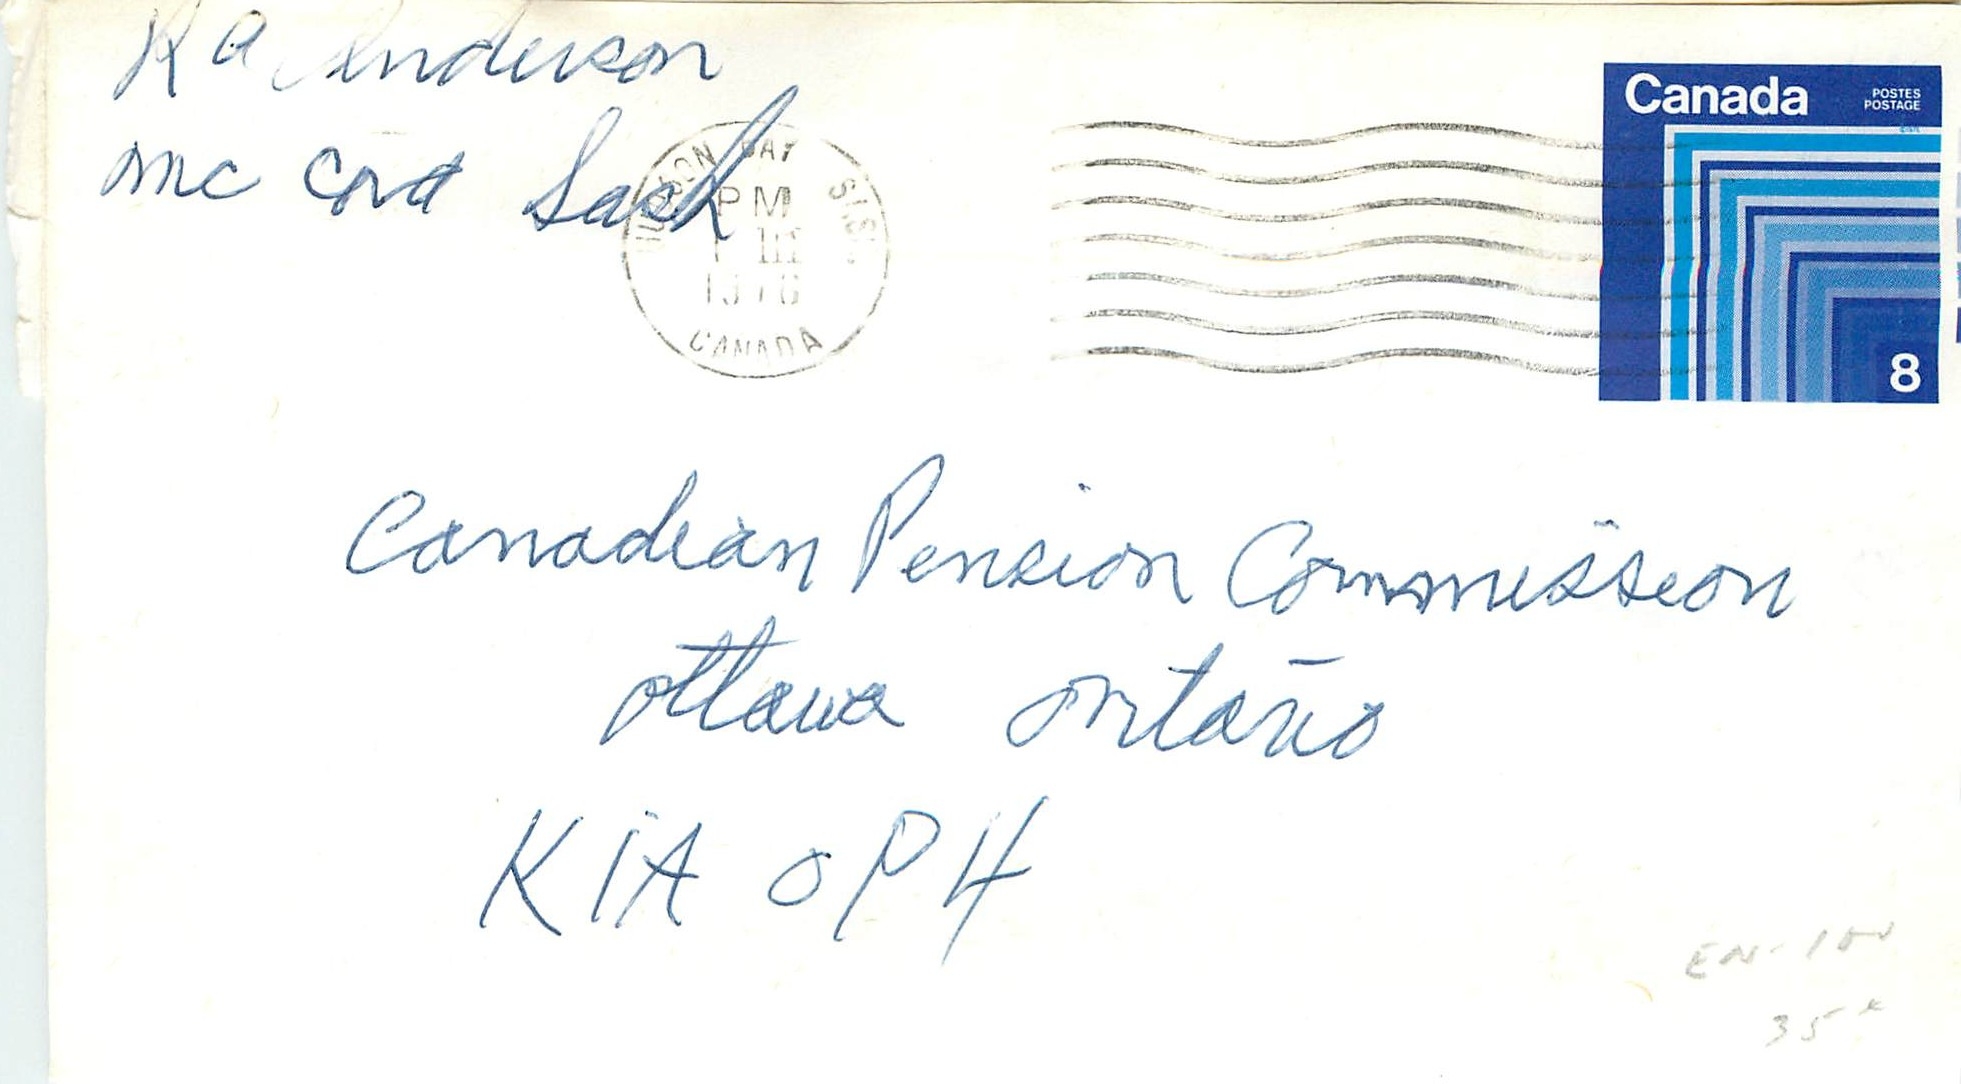 R a Anderson
Mc Cord Sask
HUDSON BAY SASK.
PM
1 III
1976
CANADA
Canada
POSTES
POSTAGE
8
Canadian Pension Commission
Ottawa Ontario
K1A 0P4
EN-100
35